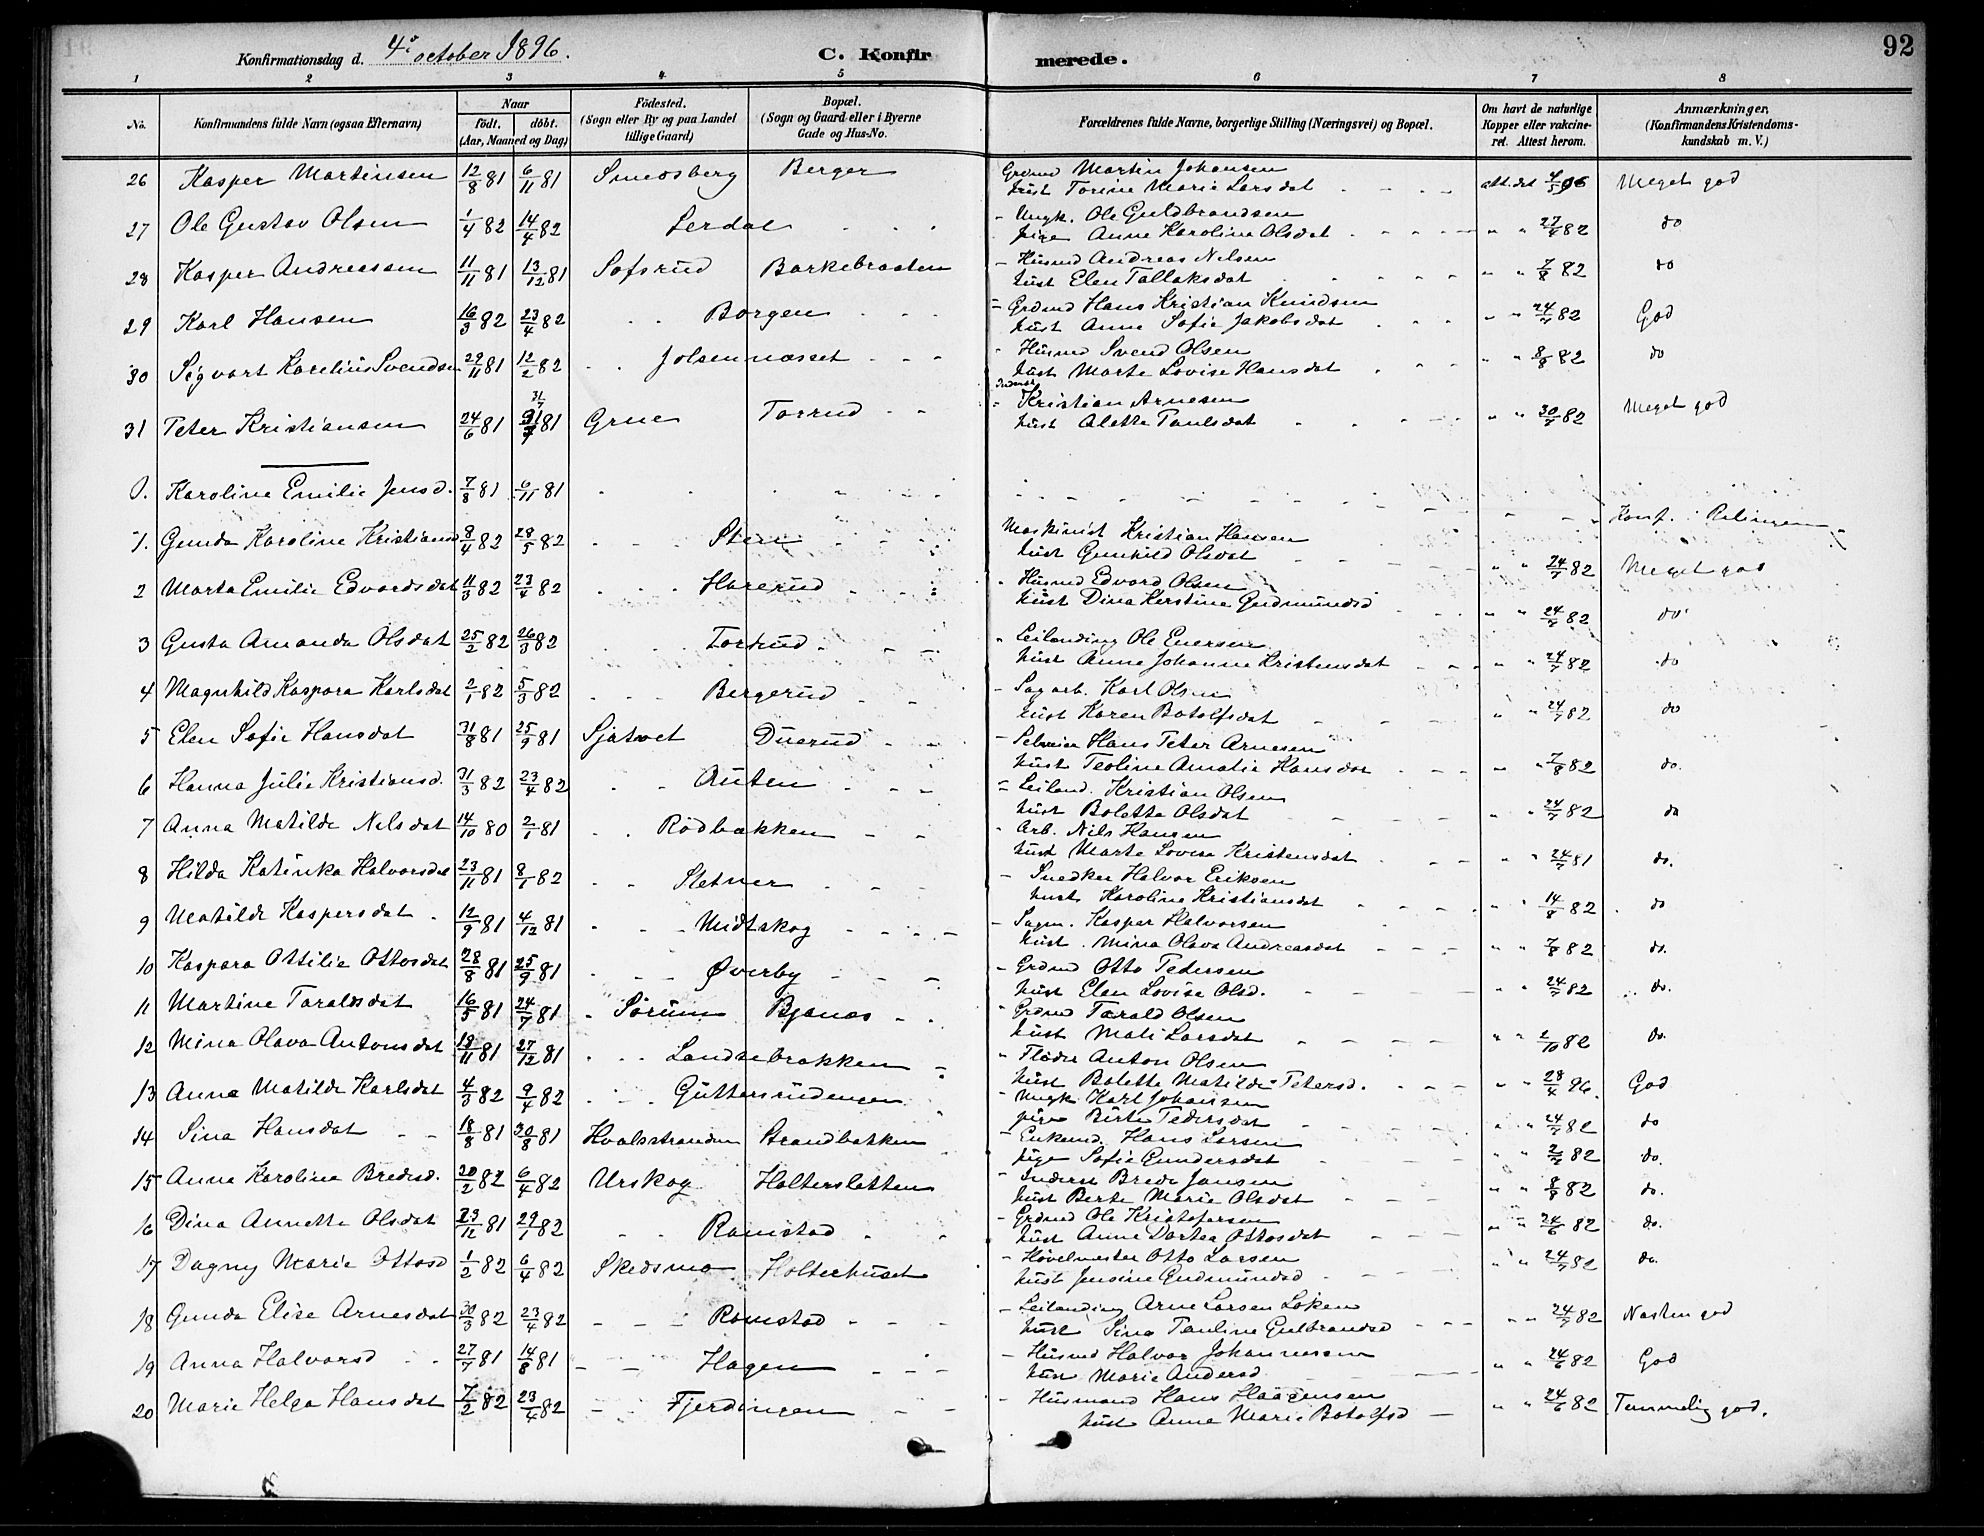 92
Konfirmationsdag d. 4de october 1896. C. Konfirmerede.
1 2 3 4 5 6 7 8
No. Konfirmandens fulde Navn (ogsaa Efternavn) Naar födt. döbt. (Aar, Maaned og Dag) Födested. (Sogn eller By og paa Landet tillige Gaard) Bopæl. (Sogn og Gaard eller i Byerne Gade og Hus-No. Forældrenes fulde Navne, borgerlige Stilling (Næringsvei) og Bopæl. Om havt de naturlige Kopper eller vakcineret. Attest herom. Anmærkninger, (Konfirmandens Kristendomskundskab m. V.)
26 Kasper Martinsen 12/8 81 6/11 81 Berger Grdmd Martin Johansen
hust Torine Marie Larsdat Meget god
27 Ole Gustav Olsen 1/4 82 14/4 82 Lerdal Ungk. Ole Guldbrandsen
pige Anne Karoline Olsdat " " 27/4 82 do
28 Kasper Andreassen 11/11 81 13/12 81 Sofsrud Barkebraaten Husmd Andreas Nilsen
hust Elen Tollaksdat " " 7/8 82 do
29 Karl Hansen 16/3 82 23/4 82 Borgen Grdmd Hans Kristian Knudsen
hust Anne Sofie Jakobsdat " " 24/7 82 God
30 Sigvart Karelius Svendsen 29/11 81 12/2 82 Husmd Svend Olsen
hust Marte Lovise Hansdat " " 8/8 82 do
31 Peter Kristiansen 24/6 81 31/7 81 Grue Torrud Inderst Kristian Arnesen
hust Alette Paulsdat " " 30/7 82 Meget god
Karoline Emilie Jensd. 7/8 81 6/11 81 Konf. i Rælingen
1. Gunda Karoline Kristiansd 8/4 82 28/5 82 Sten Maskinist Kristian Hansen
hust Gunhild Olsdat " " 24/7 82 Meget god
2 Marta Emilie Edvardsdat 11/3 82 23/4 82 Harerud Husmd Edvard Olsen
hust Dina Kerstine Gudmundsd " " 24/7 82 do
3 Gusta Amanda Olsdat 25/2 82 26/3 82 Tordrud Leilending Ole Enersen
hust Anne Johanne Kristensdat " " 24/7 82 do
4 Magnhild Kaspara Karlsdat 2/1 82 5/3 82 Bergerud Sagarb. Karl Olsen
hust Karen Botolfsdat " " 24/7 82 do
5 Elen Sofie Hansdat 31/8 81 25/9 81 Sjatvet Duerud Selveier Hans Peter Arnesen
hust Teoline Amalie Hansdat " " 7/8 82 do.
6 Hanna Julie Kristiansd. 31/3 82 23/4 82 Auten Leilend. Kristian Olsen
hust Bolette Olsdat " " 24/7 82 do
7 Anna Matilde Nilsdat 14/10 80 2/1 81 Rödbakken Arb. Nils Hansen
hust Marte Lovise Kristensdat " " 24/7 81 do.
8 Hilda Katinka Halvorsdat 23/11 81 8/1 82 Sletner Snedker Halvor Eriksen
hust Karoline Kristiansdat " " 14/8 82 do
9 Matilde Kaspersdat 12/9 81 4/12 81 Midtskog Sagm. Kasper Halvorsen
hust Mina Olava Andreasdat " " 7/8 82 do.
10 Kaspara Ottilie Ottosdat 28/8 81 25/9 81 Øverby Grdmd Otto Pedersen
hust Elen Lovise Olsd. " " 24/7 82 do.
11 Martine Taraldsdat 16/5 81 24/7 81 Sörum Bjanes Grdmd Tarald Olsen
hust Mali Larsdat " " 2/10 82 do.
12 Mina Olava Antonsdat 18/11 81 27/12 81 Fløder Anton Olsen
hust Bolette Matilde Petersd. " " 28/4 96. God
13 Anna Matilde Karlsdat 4/3 82 9/4 82 Guttersrudengen Ungk Karl Johansen
pige Birte Pedersdat " " 24/7 82 do
14 Sina Hansdat 18/8 81 30/8 81 Hvalsstranden Strandbakken Enkemd. Hans Larsen
pige Sofie Gundersdat do.
15 Anna Karoline Bredesd. 20/2 82 6/4 82 Urskog Holtersletten Inderst Brede Jansen
hust Berte Marie Olsdat do.
16 Dina Annette Olsdat 23/12 81 29/1 82 Ramstad Grdmd Ole Kristofersen
hust Anne Dortea Ottosdat " " 24/6 82 do.
17 Dagny Marie Ottosd 1/2 82 6/4 82 Skedsmo Holterhuset Høvelmester Otto Larsen
hust Jensine Gudmundsd " " 24/7 82 do.
18 Gunda Elise Arnesdat 30/3 82 23/4 82 Ramstad Leilending Arne Larsen Løken
hust Sina Pauline Gulbrandsd " " 24/7 82 Næsten god
19 Anna Halvorsd 27/7 81 14/8 81 Hagen Husmd Halvor Johannessen
hust Marie Andersd " " 24/6 82 God
20 Marie Helga Hansdat 7/2 82 23/4 82 Fjerdingen Husmand Hans Haagensen
hust Anne Marie Botolfsd " " 24/6 82 Temmelig god.